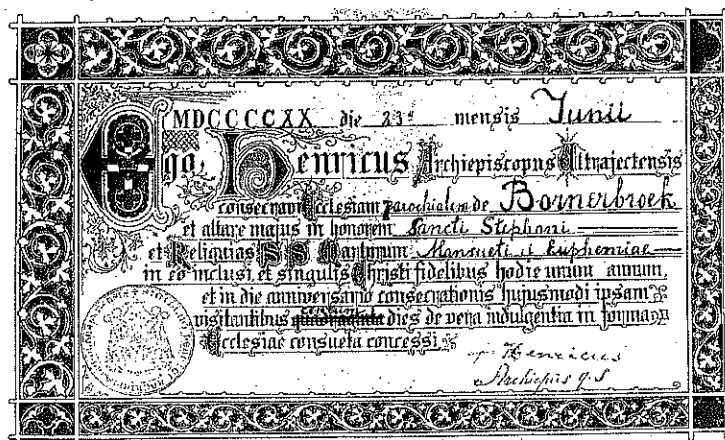 MDCCCCXX die 23ᵃ mensis Junii
Ego, Henricus Archiepiscopus Ultrajectensis
consecravi Ecclesiam parochialem de Bornerbroek
et altare majus in honorem Sancti Stephani
et Reliquias SS Martyrum Mansueti et Euphemiae
in eo inclusi, et singulis Christi fidelibus hodie unum annum,
et in die anniversario consecrationis hujusmodi ipsam
visitantibus dies de vera indulgentia in forma
Ecclesiae consueta concessi.
Henricus
Archiepūs